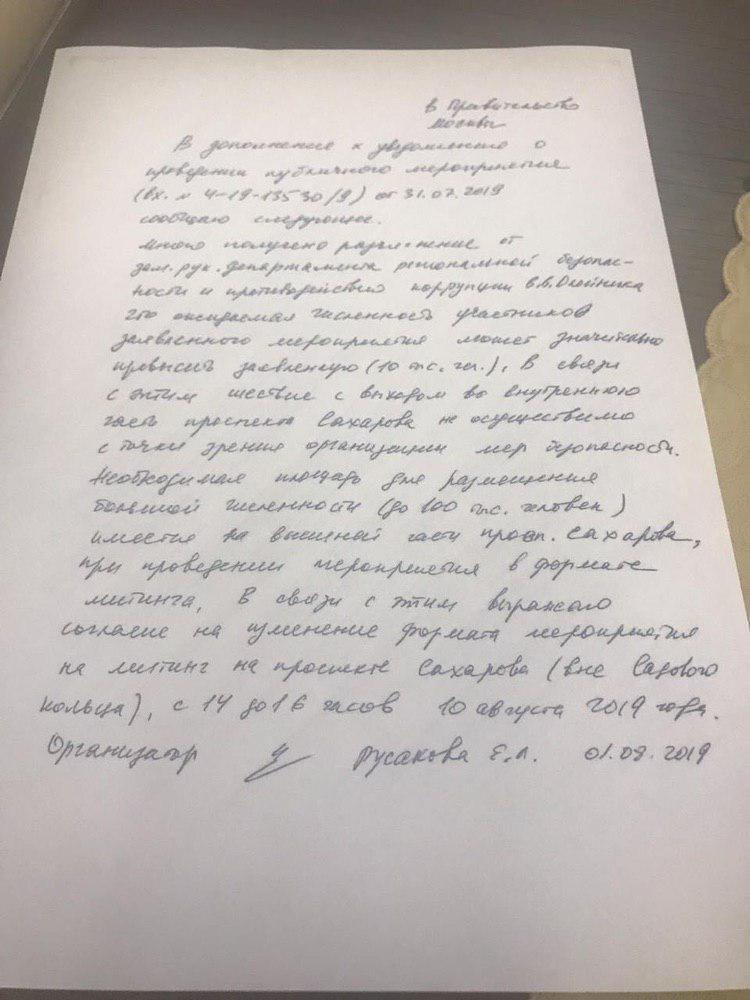 в Правительство
Москвы
В дополнение к уведомлению о
проведении публичного мероприятия
(вх. № 4-19-13530/9) от 31.07.2019
сообщаю следующее.
мною получено разъяснение от
зам. рук. департамента региональной безопас-
ности и противодействия коррупции В.В. Олейника
что ожидаемая численность участников
заявленного мероприятия может значительно
превысить заявленную (10 тыс. чел.), В связи
с этим шествие с выходом во внутреннюю
часть проспекта Сахарова не осуществимо
с точки зрения организации мер безопасности.
Необходимая площадь для размещения
большой численности (до 100 тыс. человек)
имеется на внешней части просп. Сахарова,
при проведении мероприятия в формате
митинга, В связи с этим выражаю
согласие на изменение формата мероприятия
на митинг на проспекте Сахарова (вне Садового
кольца), с 14 до 16 часов 10 августа 2019 года.
Организатор Русакова Е.Л. 01.08.2019